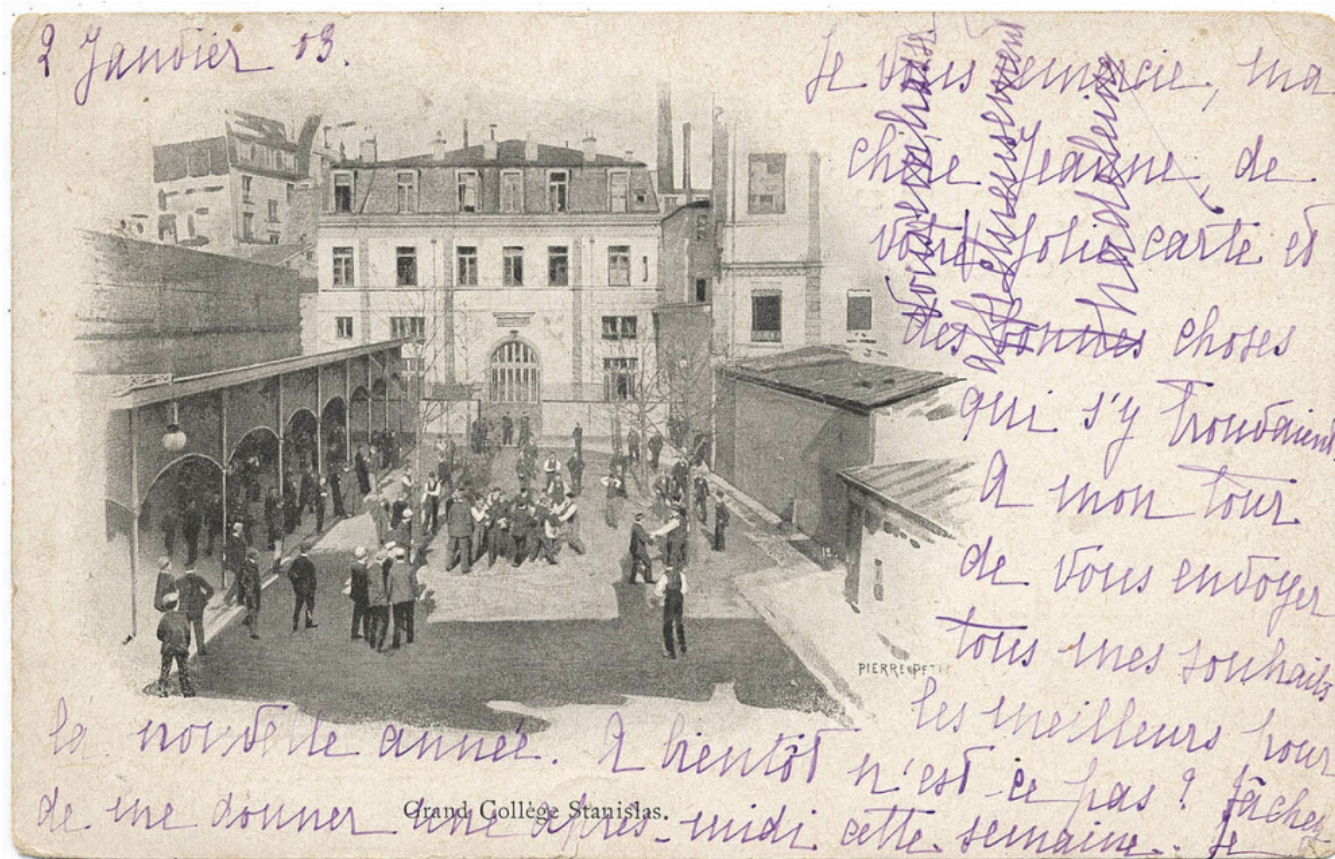 2 Janvier 03.
Je vous remercie, ma
chère Jeanne, de
votre jolie carte et
des bonnes choses
qui s'y trouvaient.
A mon tour
de vous envoyer
tous mes souhaits
les meilleurs pour
la nouvelle année. A bientôt n'est ce pas ? Tâchez
de me donner une après-midi cette semaine. Je
vous embrasse
affectueusement
Madeleine
PIERRE PETIT
12.
Grand Collège Stanislas.